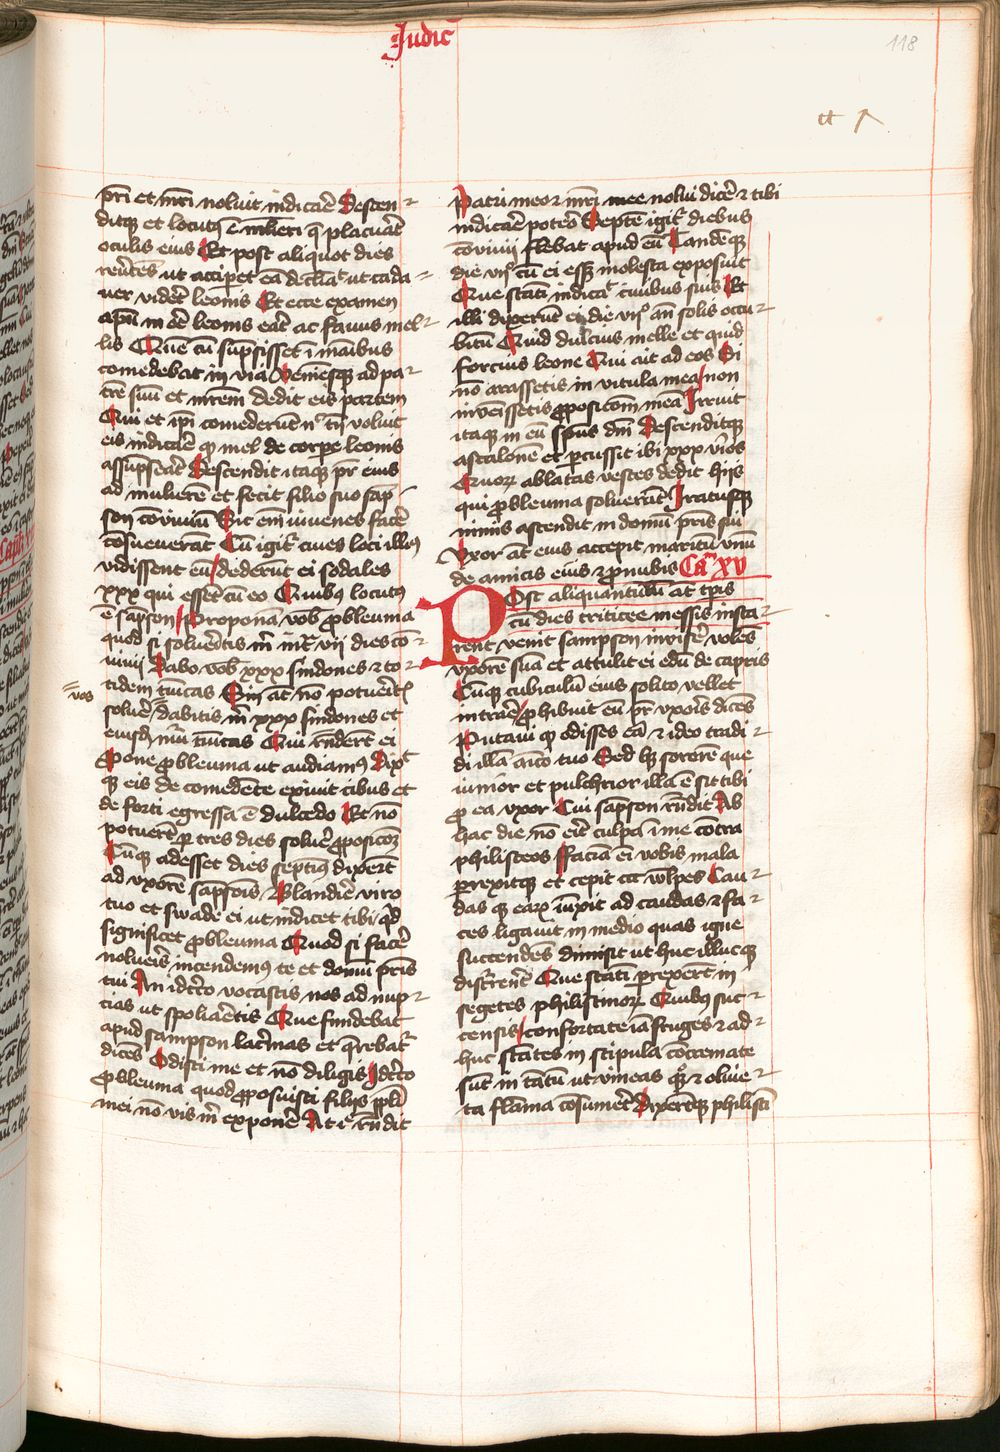 Judic̄
118
pr̄i et mr̄i noluit indicar̄e Descen⸗
ditqꝫ et locutꝰ ē ml̄ieri q̄ placuāt̄
oculis eius Et post aliquot dies
reūtēs ut accip̄et eā declīāt ut cada⸗
uer videt̄ leonis Et ecce examen
apū in oē leonis erāt ac fauus mel⸗
lis Quē cū sūpsisset ī māibus
comedebat in via Veniēsqꝫ ad pa⸗
trē suū et mr̄em dedit eis partem
Qui et ip̄i comederūt nͨ tn̄ voluit
eis indicar̄e qꝫ mel de corꝑe leonis
assūpserāt Descendit itaqꝫ pr̄ eius
ad mulierē et fecit filio suo sāp⸗
son cōviuiū Sic em̄ iuuenes facer̄e
cōsueuerāt Cū igitͬ ciues loci illiꝰ
vidissent eū dederūt ei sodales
xxx qui essēt cū eo Quibꝰ locutꝰ
ē sāpson Proponā vob̄ ꝓbleuma
quod si soluer̄tis m̄ inf̄ vii dies cō⸗
uiuij Dabo vob̄ xxx sindones ⁊ to⸗
tidem tūicas Sin āt nō potuer̄it
vos
soluer̄e dabitis m̄ xxx sindones et
eiusdē nūi tūicas Qui rn̄derūt ei
Pone ꝓbleuma ut audiamꝰ Dixͭ
qꝫ eis de comedēte exiuit cibus et
de forti egressa ē dulcedo Et nō
potuerūt ꝑ tres dies soluer̄ ꝓposicōꝫ
Cūqꝫ adesset dies septiꝰ dixer̄t
ad vxorē sāpsōis Blandir̄e viro
tuo et swade ei ut indicet tibi qͥd
significet ꝓbleuma Quod si facer̄e
noluer̄is incendemꝰ te et domū pr̄is
tui An idcͥco vocastis nos ad nup⸗
cias ut spoliaretis Que fundebat
apud sampson lacͥmas et q̄rebatͬ
dicēs Odisti me et nō diligis Idcͥco
ꝓbleuma quod ꝓposuisti filijs ppl̄i
mei nō vis m̄ exponer̄e At ille rn̄dit
Patri meo ⁊ mr̄i mee nolui dicer̄e ⁊ tibi
indicar̄e poterō Septē igitͬ diebus
cōviuij flebat apud eū Tandēqꝫ
die viiͦ cū ei esset molesta exposuit
Que statī indicāͭ ciuibus suis Et
illi dixerūt ei die viiͦ an̄ solis occu⸗
bitū Quid dulcius melle et quid
forcius leone Qui ait ad eos Si
nō arassetis in vitula mea non
inveīssetis ꝓposicōm meā Irruit
itaqꝫ in eū sp̄us dn̄i Descenditqꝫ
ascalonē et ꝑcussit ibi xxx viros
Quoꝝ ablatas vestes dedit hijs
qui ꝓbleuma soluerāt Iratusqꝫ
nimis ascendit in domū pr̄is sui
Vxor āt eius accepit maritū vnū
de amicis eius ⁊ ꝓnubis Cāͫ xv
Post aliquantulū āt tp̄is
cū dies triticee messis insta⸗
rent venit sampson inviser̄e volēs
vxorē suā et attulit ei edū de capris
Cūqꝫ cubiculū eius solito vellet
intrar̄e ꝓhibuit eū pr̄ vxoris dicēs
Putaui qꝫ odisses eā ⁊ ideo tradi⸗
di illā amīco tuo Sed hꝫ sororē que
iunior et pulchrior illa ē sit tibi
ꝓ ea vxor Cui sāpson rn̄dit Ab
hac die nō erit culpa ī me cōtra
philisteos Faciā em̄ vobis mala
ꝑrexitqꝫ et cepit ccc wlpes Cau⸗
dasqꝫ earꝝ iūxit ad caudas ⁊ fa⸗
ces ligauit in medio quas igne
succendēs dimisit ut huc illucqꝫ
discͬrent Que statī ꝑrexerūt in
segetes philistinoꝝ Quibꝰ suc⸗
censis confortate iā fruges ⁊ ad⸗
huc stātes in stipula cōcremate
sūt in tātū ut vineas qꝫ ⁊ oliue⸗
ta flāma cōsumeret Dixerūtqꝫ philisti